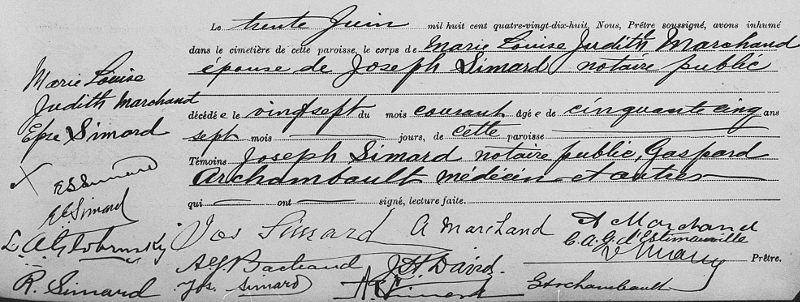 Le trente Juin mil huit cent quatre-vingt-dix-huit, Nous, Prêtre soussigné, avons inhumé
dans le cimetière de cette paroisse, le corps de Marie Louise Judith Marchand
épouse de Joseph Simard notaire public
Marie Louise
Judith Marchand
Epse Simard
décédée le vingt sept du mois courant âgée de cinquante cinq ans
sept mois jours, de cette paroisse
Témoins Joseph Simard notaire public, Gaspard
Archambault médecin et autres
qui ont signé, lecture faite.
E. Simard
Jos Simard A Marchand A Marchand
C. A. G. d'Estimauville
J. H. David. Prêtre.
R. Simard Jos. Simard A. Simard G Archambault